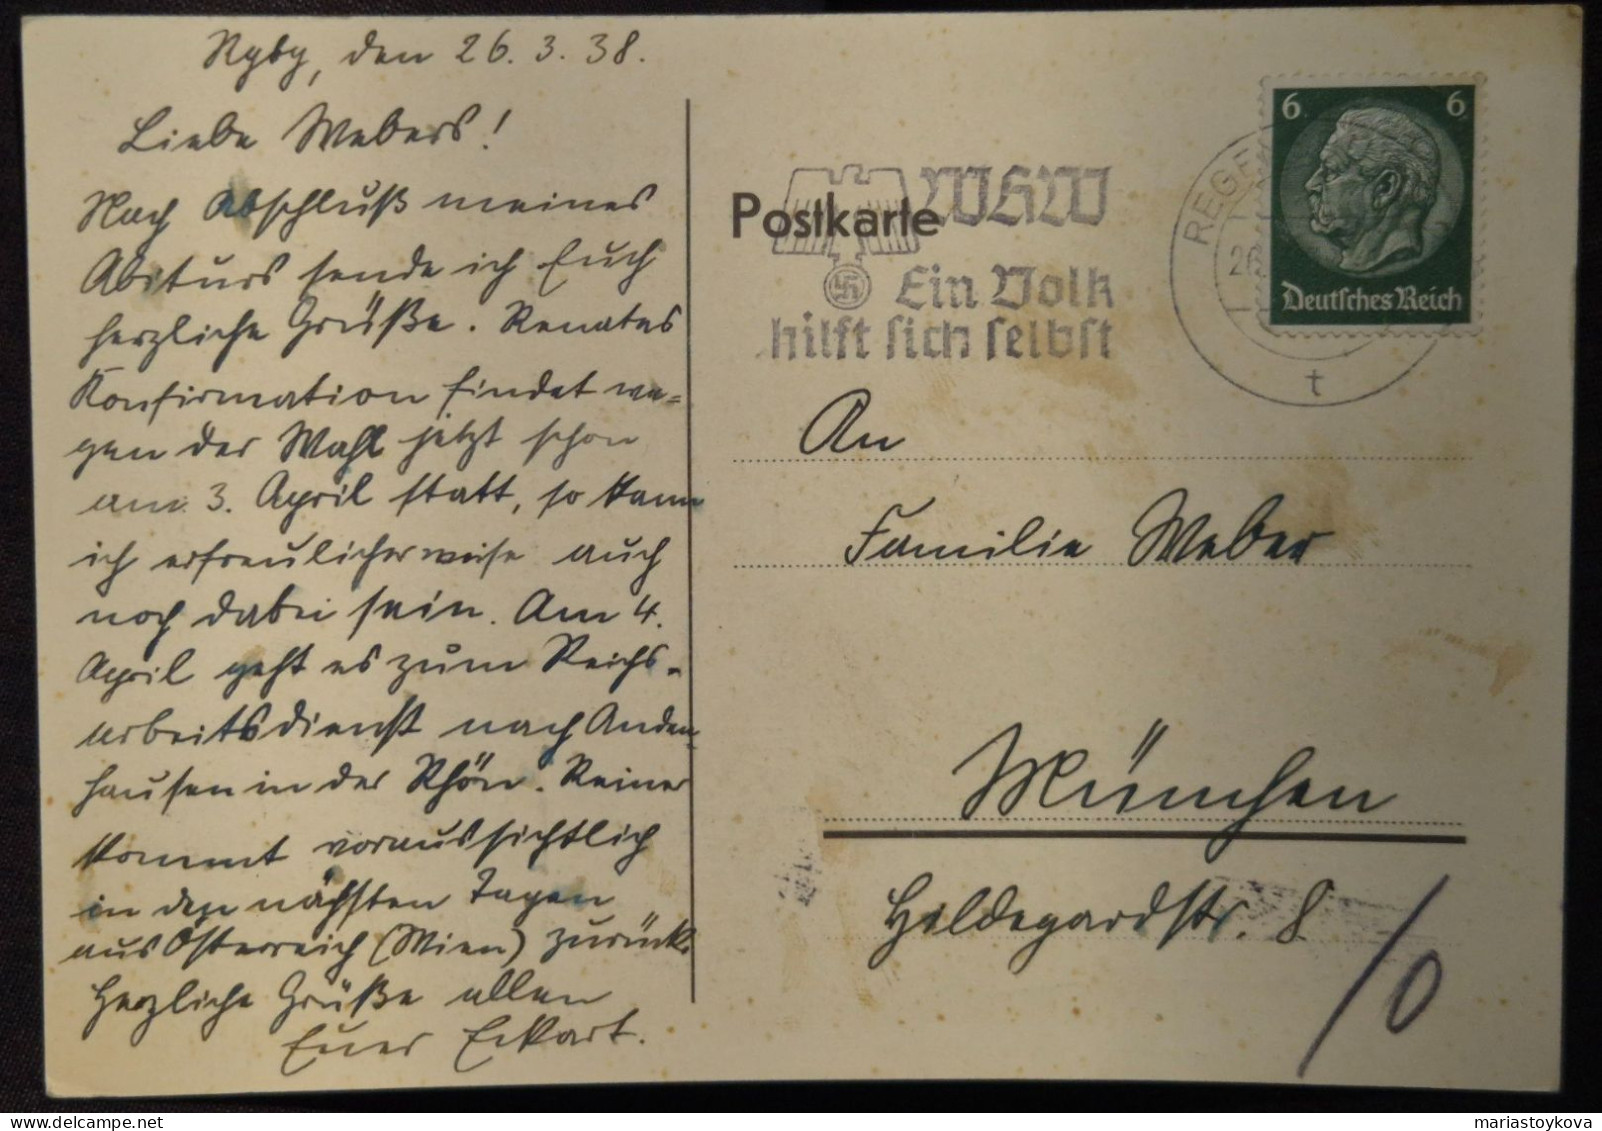 Rgbg, den 26. 3. 38.
Liebe Webers!
Nach Abschluß meines
Abiturs sende ich Euch
herzliche Grüße. Renates
Konfirmation findet we-
gen der Wahl jetzt schon
am 3. April statt, so kann
ich erfreulicherweise auch
noch dabei sein. Am 4.
April geht es zum Reichs-
arbeitsdienst nach Anden-
hausen in der Rhön. Reiner
kommt voraussichtlich
in den nächsten Tagen
aus Österreich (Wien) zurück.
Herzliche Grüße allen
Euer Eckart.
Postkarte
WHW
Ein Volk
hilft sich selbst
REGE
26
t
6 6
Deutsches Reich
An
Familie Weber
München
Hildegardstr. 8
/0
mariastoykova